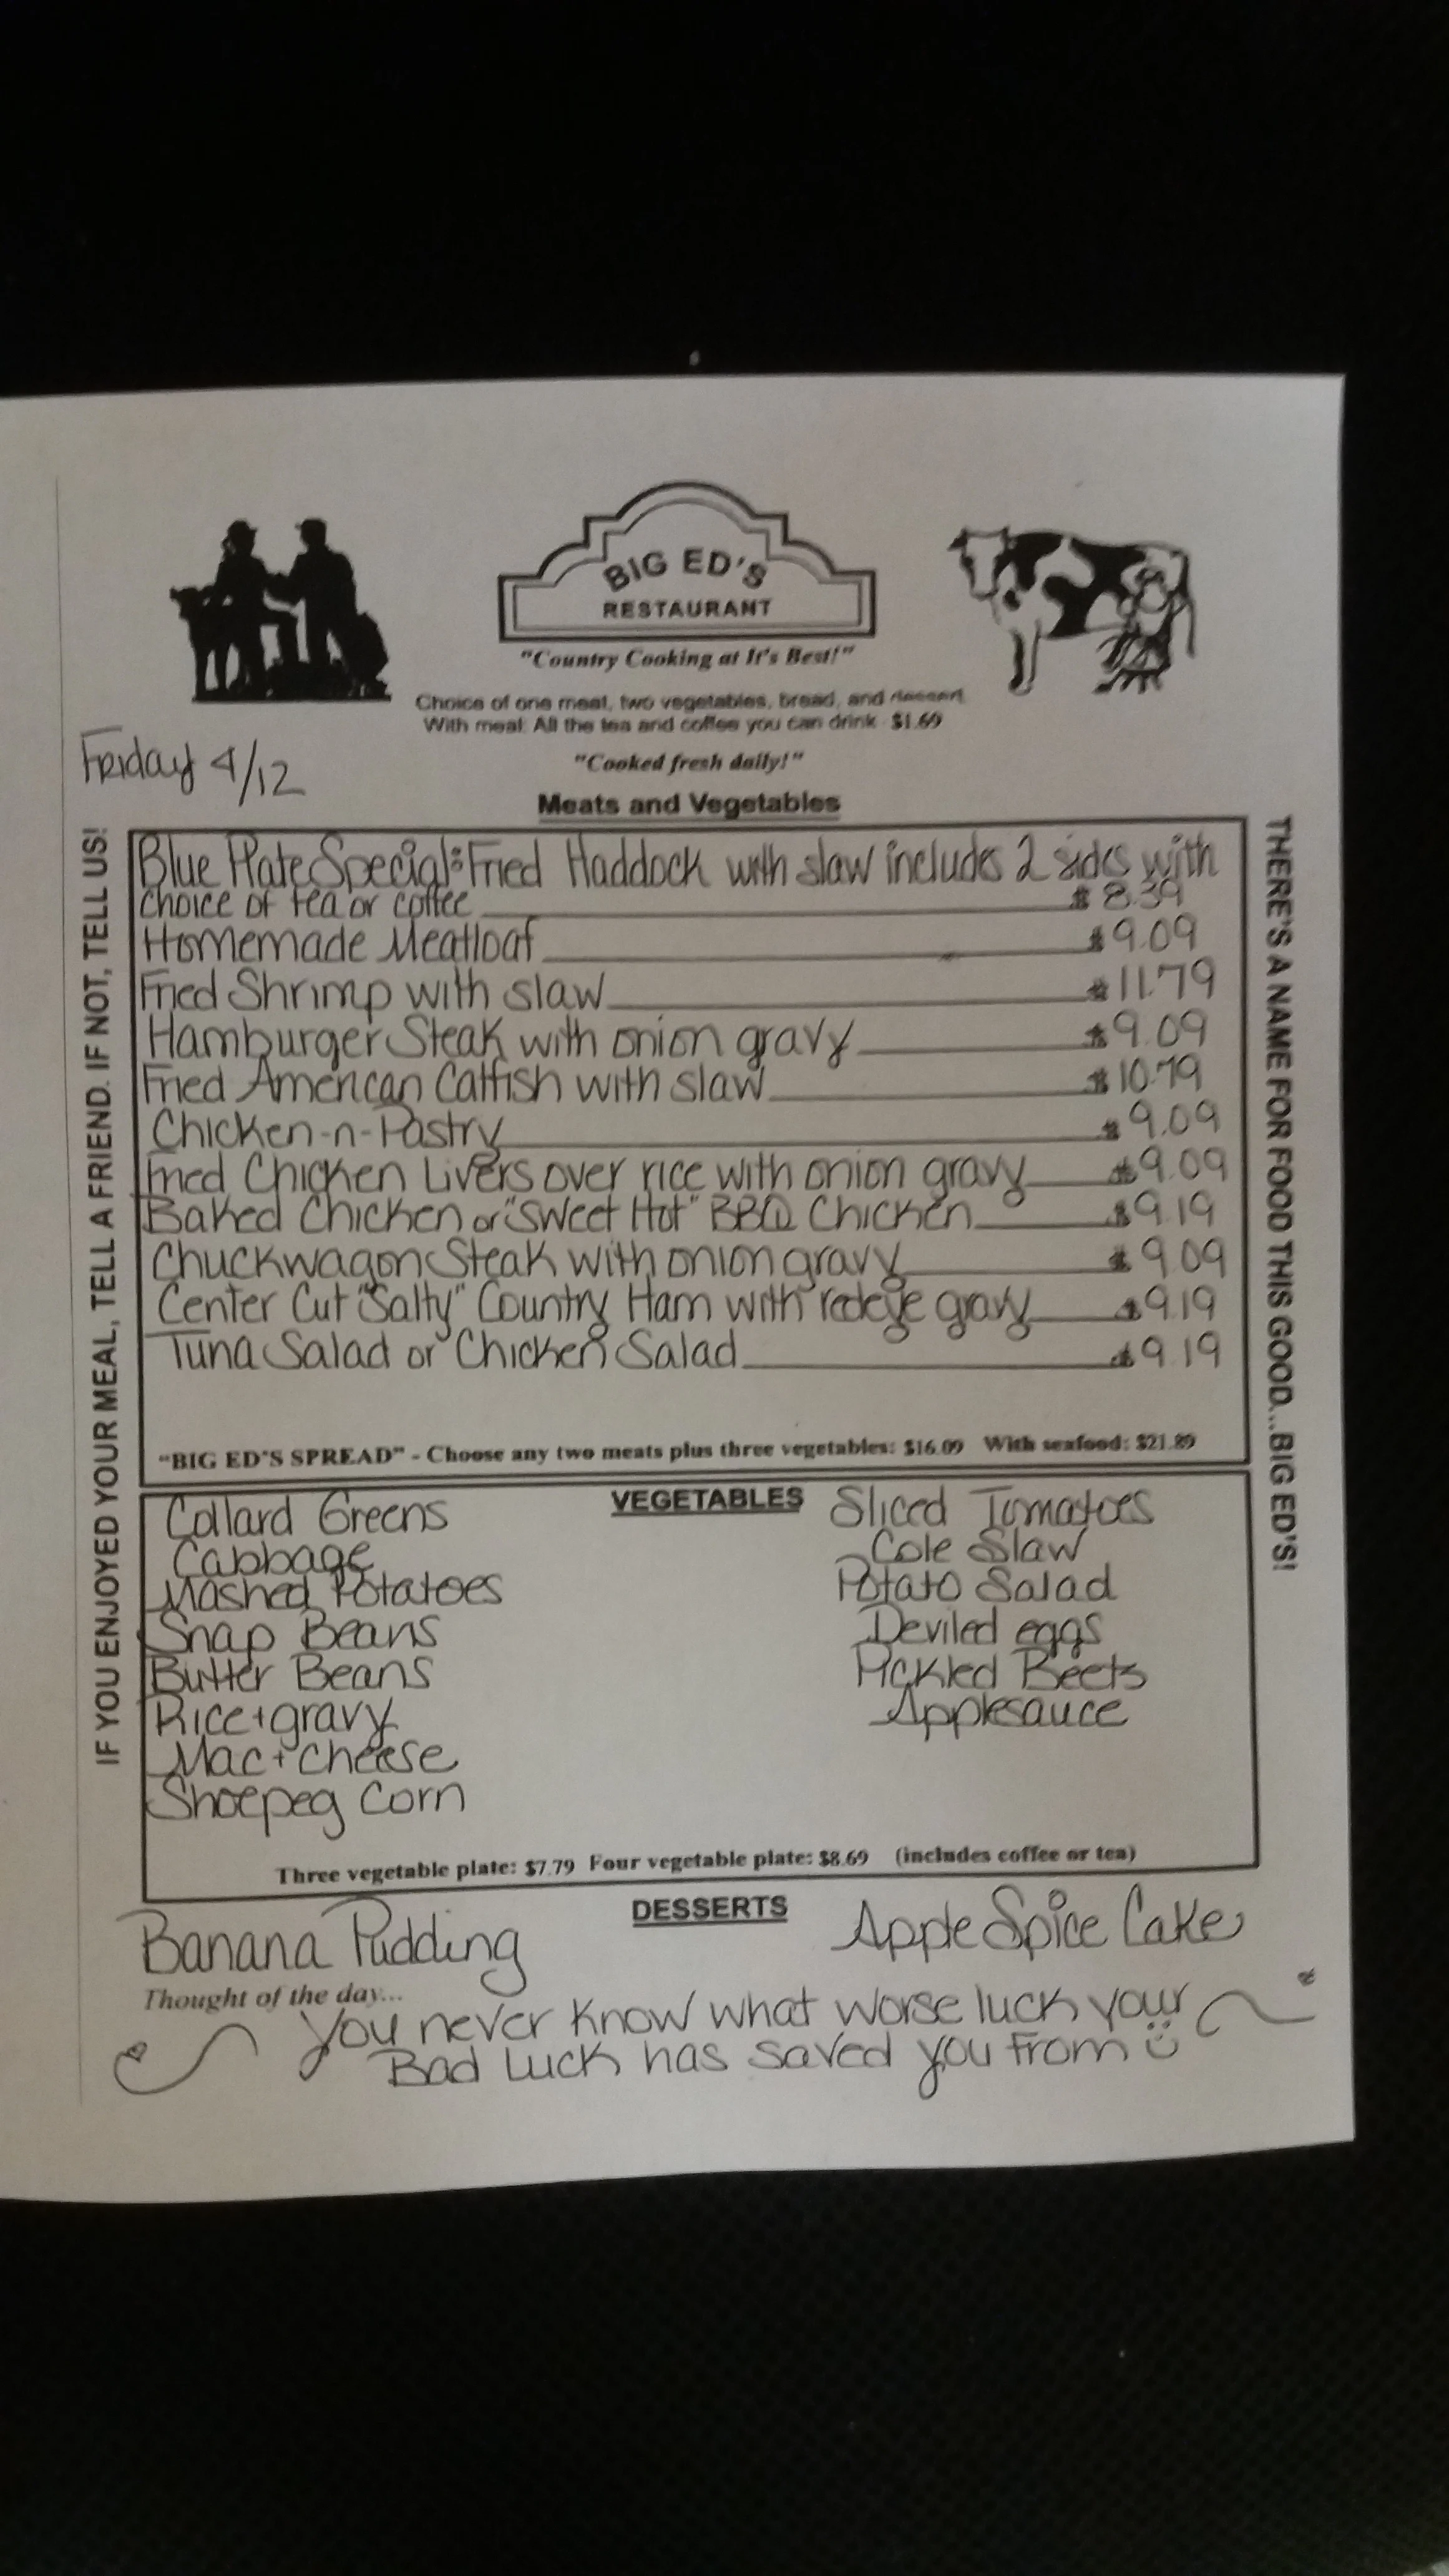 BIG ED'S
RESTAURANT
"Country Cooking at It's Best!"
Choice of one meat, two vegetables, bread, and dessert
With meal: All the tea and coffee you can drink - $1.69
"Cooked fresh daily!"
Friday 4/12
Meats and Vegetables
IF YOU ENJOYED YOUR MEAL, TELL A FRIEND. IF NOT, TELL US!
Blue Plate Special: Fried Haddock with slaw includes 2 sides with
choice of tea or coffee $8.39
Homemade Meatloaf $9.09
Fried Shrimp with slaw $11.79
Hamburger Steak with onion gravy $9.09
Fried American Catfish with slaw $10.79
Chicken-n-Pastry $9.09
Fried Chicken Livers over rice with onion gravy $9.09
Baked Chicken or "Sweet Hot" BBQ Chicken $9.19
Chuckwagon Steak with onion gravy $9.09
Center Cut "Salty" Country Ham with redeye gravy $9.19
Tuna Salad or Chicken Salad $9.19
"BIG ED'S SPREAD" - Choose any two meats plus three vegetables: $16.09 With seafood: $21.89
THERE'S A NAME FOR FOOD THIS GOOD...BIG ED'S!
VEGETABLES
Collard Greens
Cabbage
Mashed Potatoes
Snap Beans
Butter Beans
Rice + gravy
Mac + cheese
Shoepeg Corn
Sliced Tomatoes
Cole Slaw
Potato Salad
Deviled eggs
Pickled Beets
Applesauce
Three vegetable plate: $7.79 Four vegetable plate: $8.69 (includes coffee or tea)
DESSERTS
Banana Pudding
Apple Spice Cake
Thought of the day...
You never know what worse luck your
Bad luck has saved you from